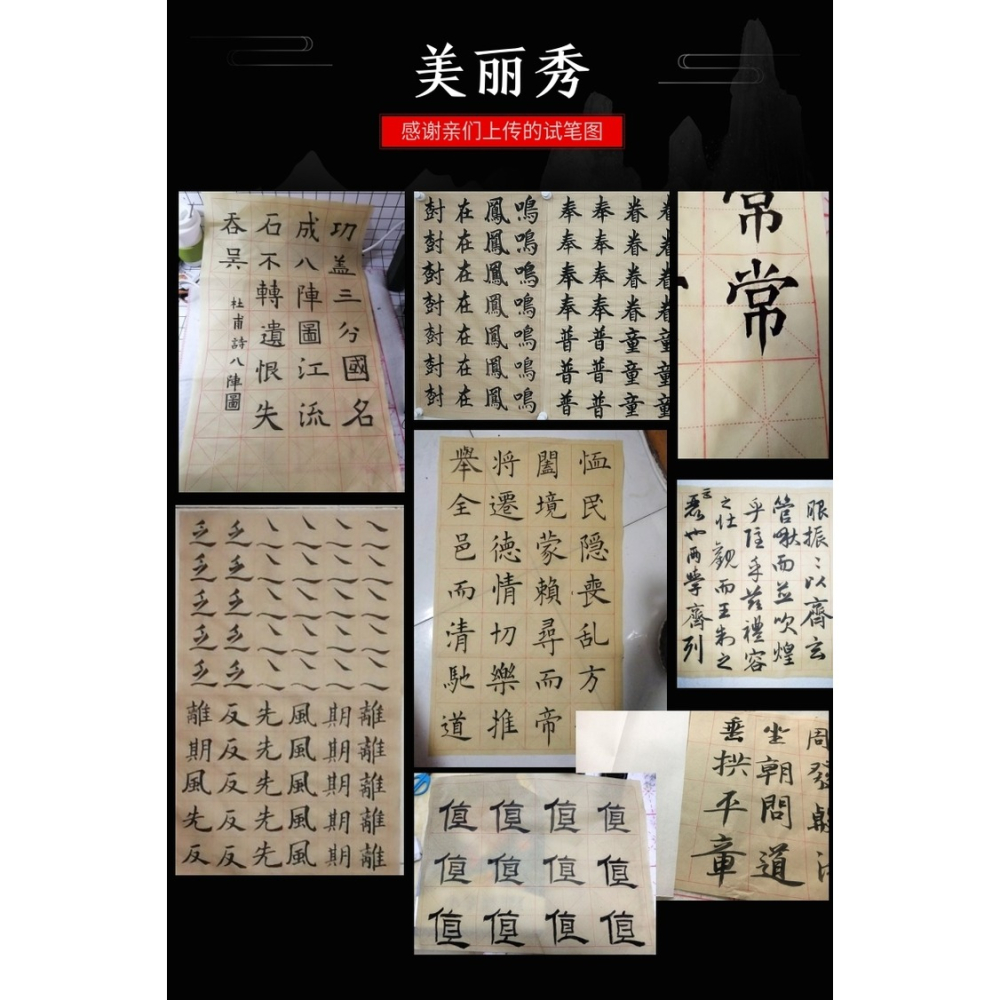 美丽秀
感谢亲们上传的试笔图
功盖三分國名
成八陣圖江流
石不轉遺恨失
吞吴
杜甫詩八陣圖
眷眷眷眷童童童
眷眷眷眷童童童
奉奉奉奉普普普
奉奉奉奉普普普
鳴鳴鳴鳴鳴鳴鳴
鳳鳳鳳鳳鳳鳳鳳
在在在在在在在
封封封封封封封
常常
恤民隐喪乱方
闔境蒙賴尋而帝
將遷德情切樂推
舉全邑而清馳道
服振〻以齊玄
管啾而並吹煌
乎隱乎茲禮容
之壯觀而王制之
也兩學齊列
乏乏乏乏乏
乏乏乏乏乏
離離離離離
期期期期期
風風風風風
先先先先先
反反反反反
離期風先反
周發
坐朝問道
垂拱平章
值值值值
值值值值
值值值值